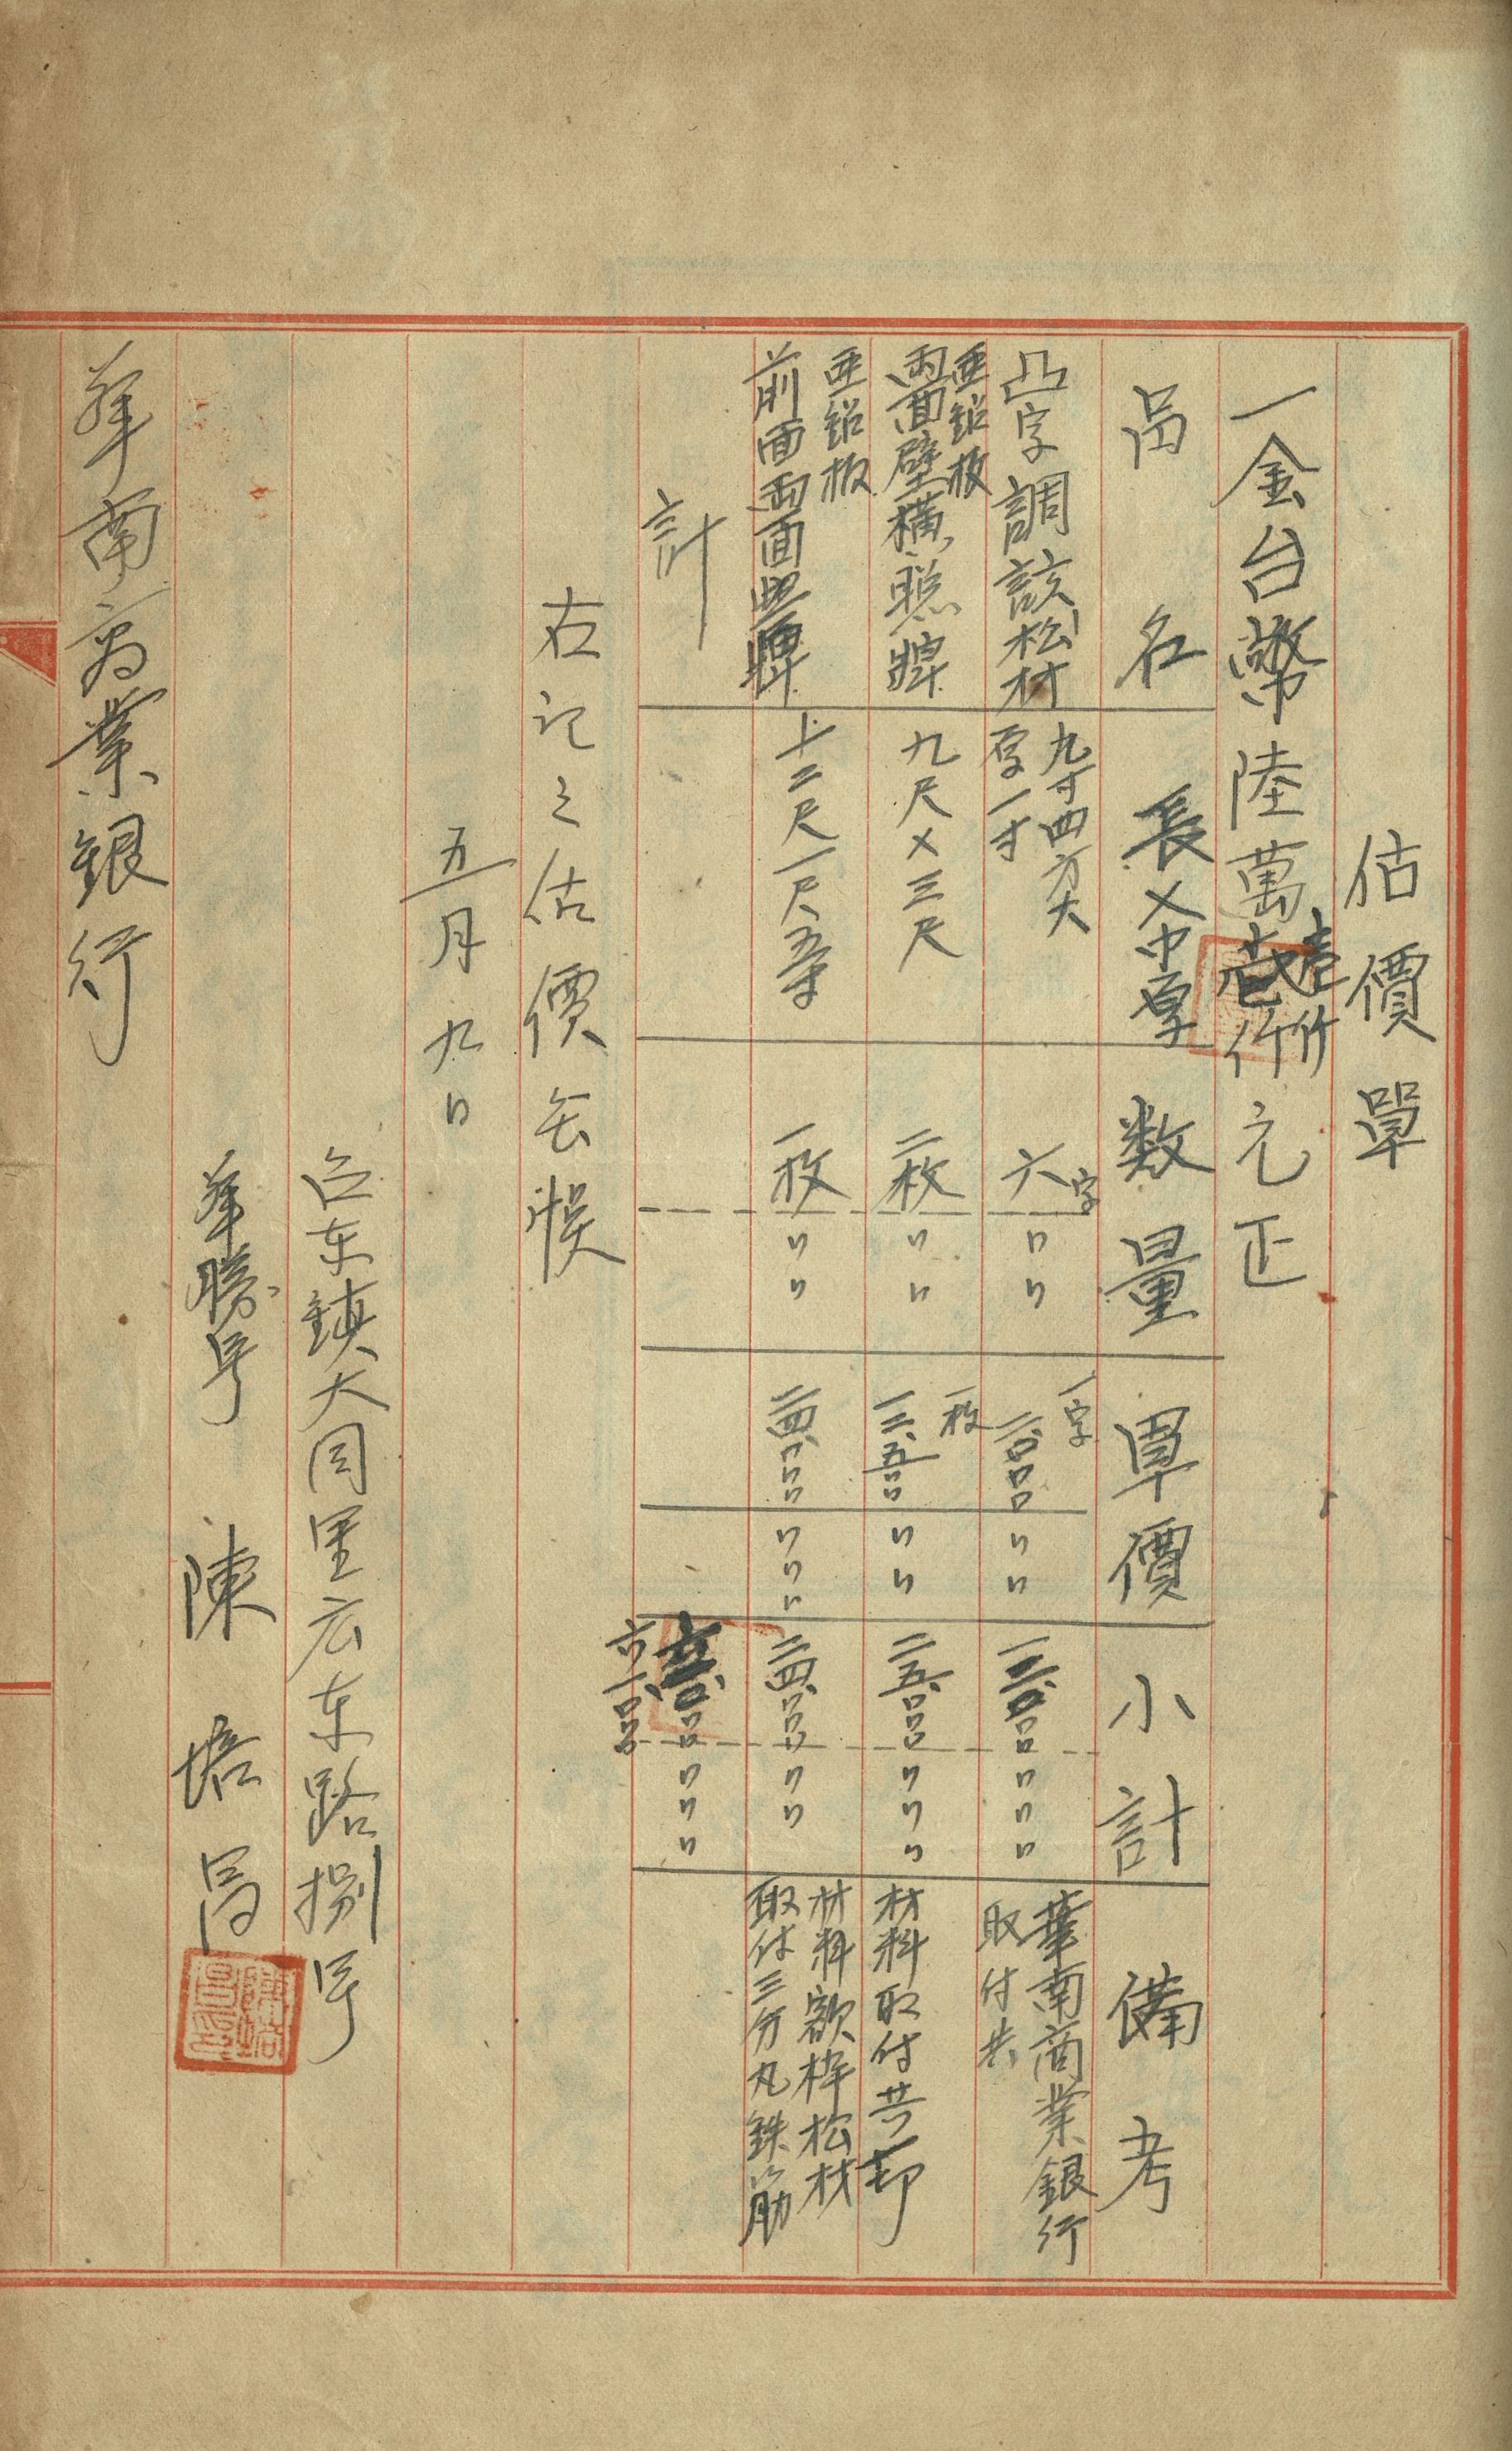 估價單
一金台幣陸萬壹仟元正
品名 長×巾厚 数量 單價 小計 備考
凸字調該松材 九寸四方大 厚一寸 六字〃〃 一字 二、〇〇〇〃〃 一二、〇〇〇〃〃〃 華南商業銀行 取付共
亜鉛板 両面壁横聯牌 九尺×三尺 二枚〃〃 一枚 一二、五〇〇〃〃 二五、〇〇〇〃〃〃 材料取付共
亜鉛板 前面両面牌 十二尺一尺五寸 一枚〃〃 二四、〇〇〇〃〃〃 二四、〇〇〇〃〃 材料額枠松材 取付三分丸鉄筋
計 六一、〇〇〇〃〃〃
右記之估價無悮
五月九日
台东鎮大同里広东路捌号
華勝号 陳培昌
華南商業銀行